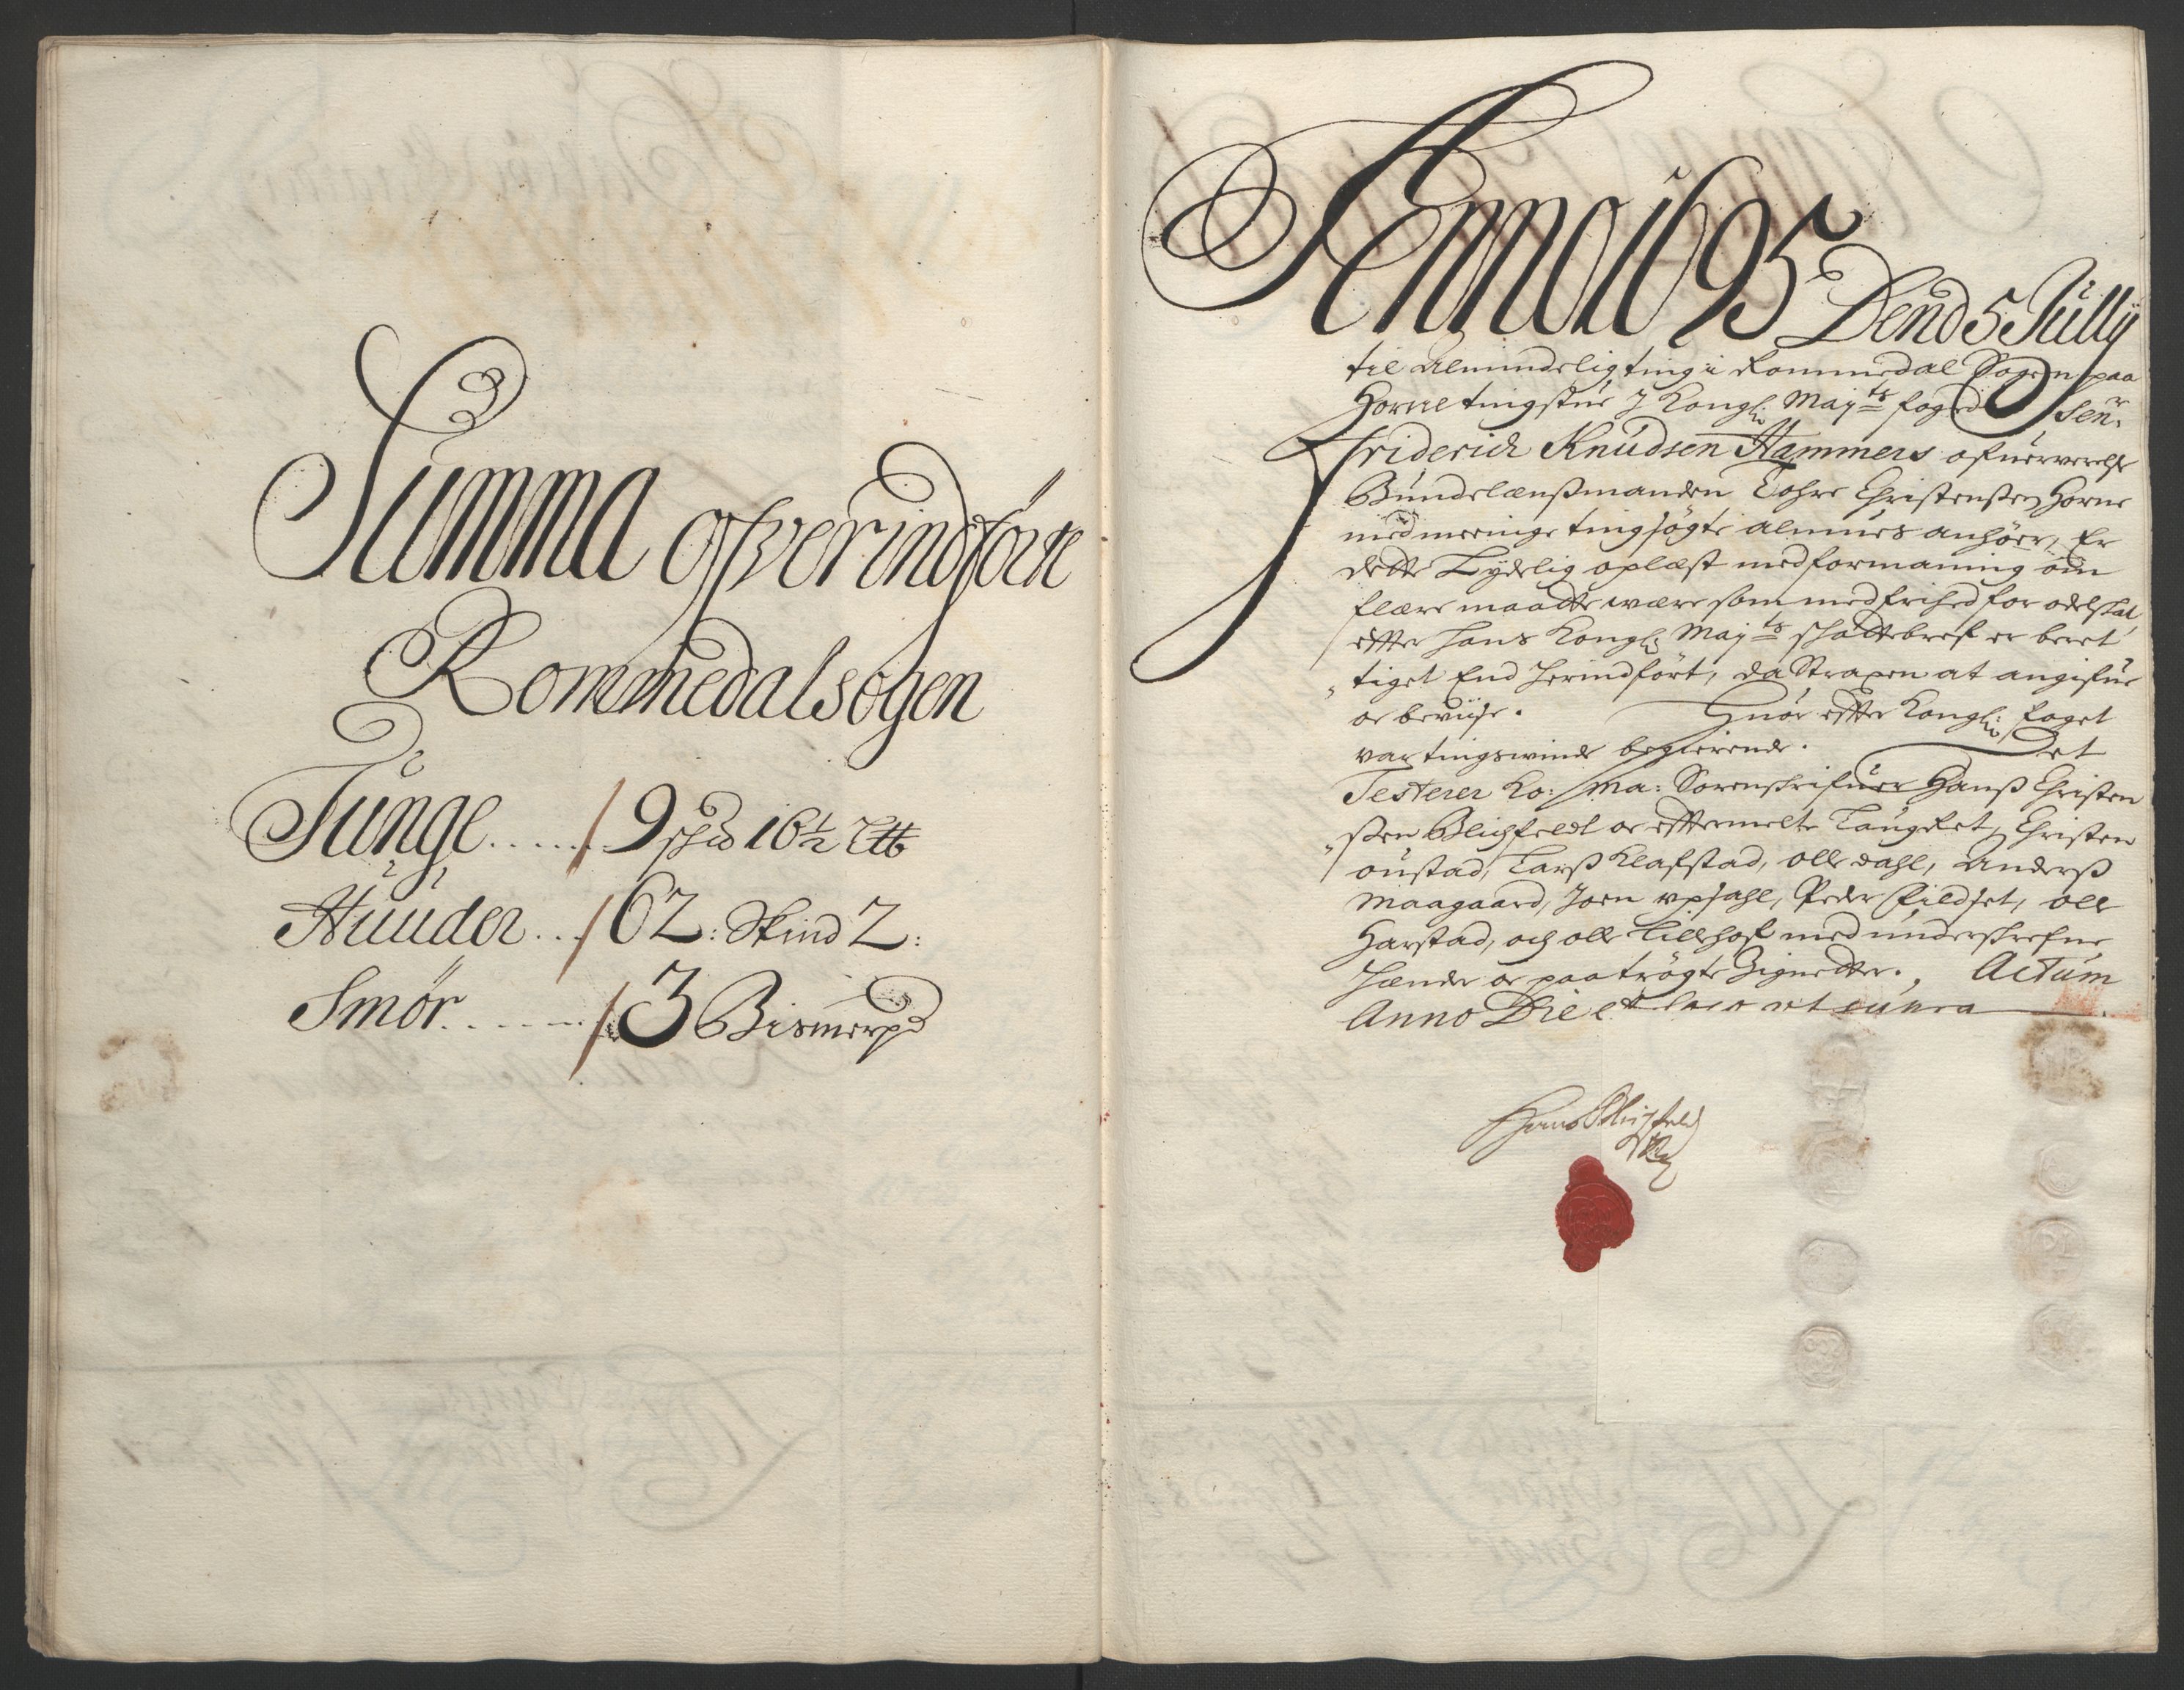 Summa ofverindførte
Rommedalsogen
Tunge ...... 9 skd 16½ L℔
Huuder ... 62: Skind 2:
Smør ...... 3 Bismerpd
Anno 1695 Dend 5 Jullÿ
til Almindelig ting i Rommedal Sogen paa
Horne tingstue J Kongl: Maj:ts foged Senr
Friderich Knudsen Hammers ofuerverelse
Bundelænßmanden Tohre Christenßen Horne
med meenige tingsøgte almues anhøer, Er
dette Tydelig oplæst med formaning om
flære maatte være som med frihed for odelskat
efter hans Kongl: Maj:ts schattebref er beret
tiget End herindført, da Straxen at angifue
oc beviise. Huor efter Kongl: foget
var tingswinde begierende. Det
Testerer Ko: Ma: Sorenskrifuer Hanß Christen
ßen Blichfeldt oc eftermelte Laugret, Christen
oustad, Larß Klafstad, olle dahl, Anderß
Maagaard, Joen opsahl, Peder fieldset, oll
Harstad, och olle Lillehof med underskrefne
hænder oc paatrøgte Zignetter. Actum
Anno Die et loco ut supra
Hans Blichfeld